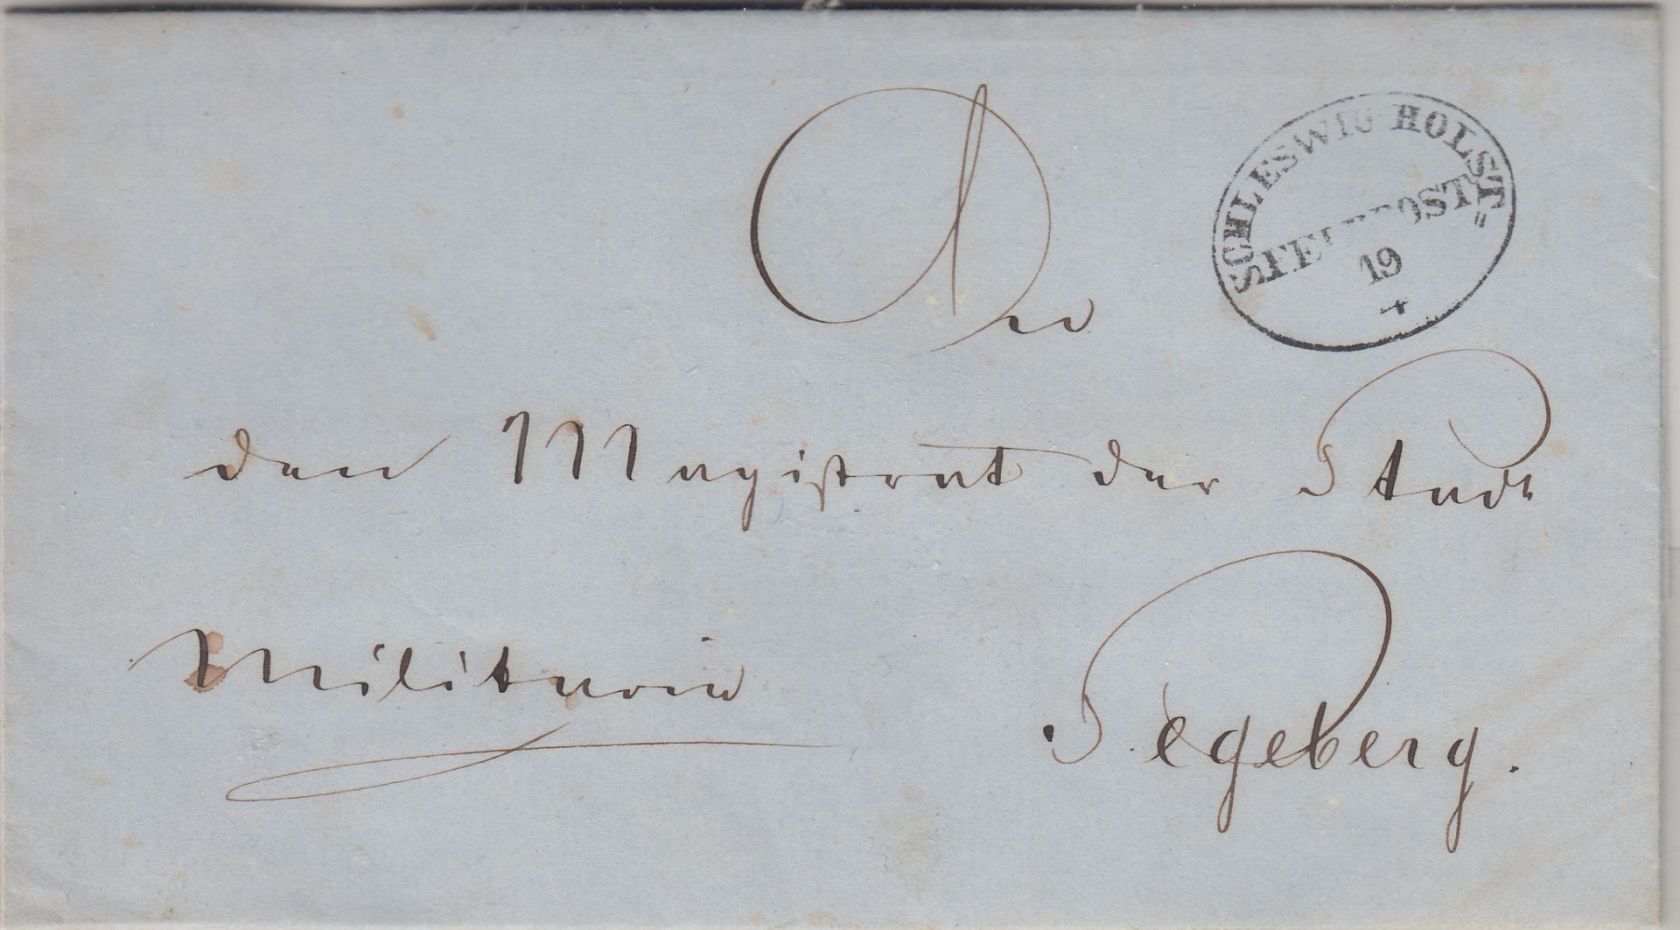 SCHLESWIG HOLST=
FELDPOST
19
4
An
den Magistrat der Stadt
Militaria
Segeberg.